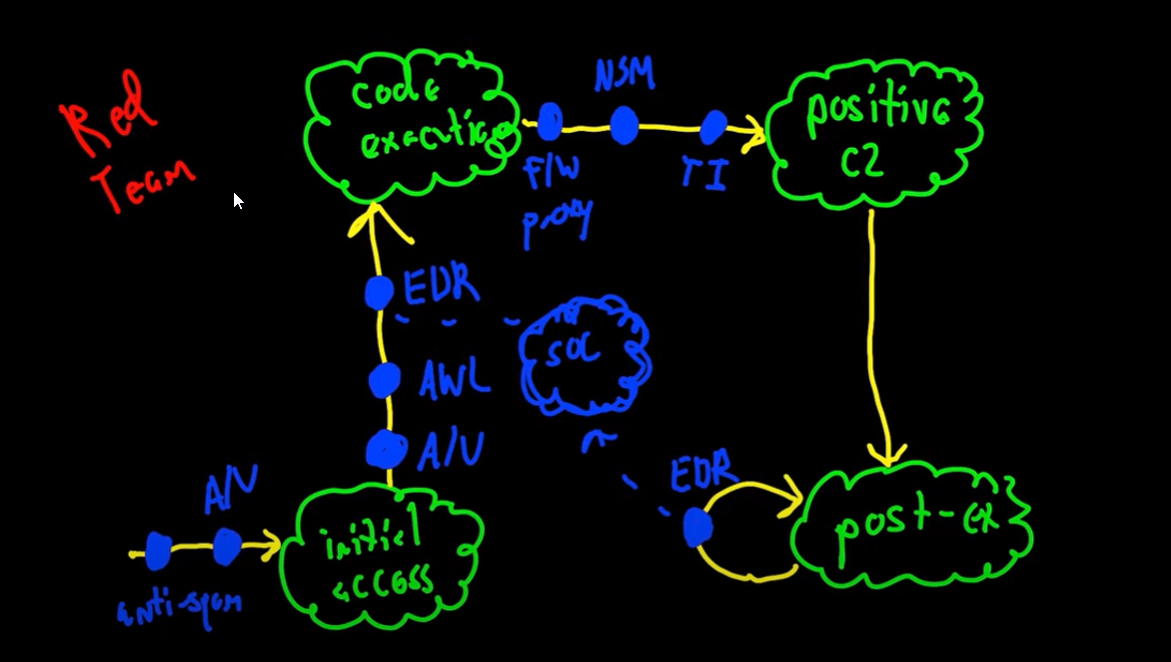 Red
Team
code
execution
NSM
F/W
proxy
TI
positive
C2
EDR
AWL
A/V
SOC
A/V
anti-spam
initial
access
EDR
post-ex